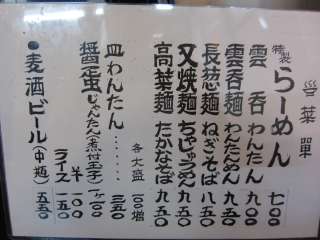 營菜單
特製らーめん 七〇〇
雲呑 わんたん 九〇〇
雲呑麺 わんたんめん 九五〇
長葱麺 ねぎそば 八五〇
叉焼麺 ちゃしゅうめん 九五〇
高菜麺 たかなそば 九五〇
各大盛 一〇〇増
皿わんたん…… 三五〇
醬蛋 じゃんたん(煮付玉子) 一ヶ 一〇〇
ライス 半 一〇〇
●麦酒 ビール(中瓶) 五五〇